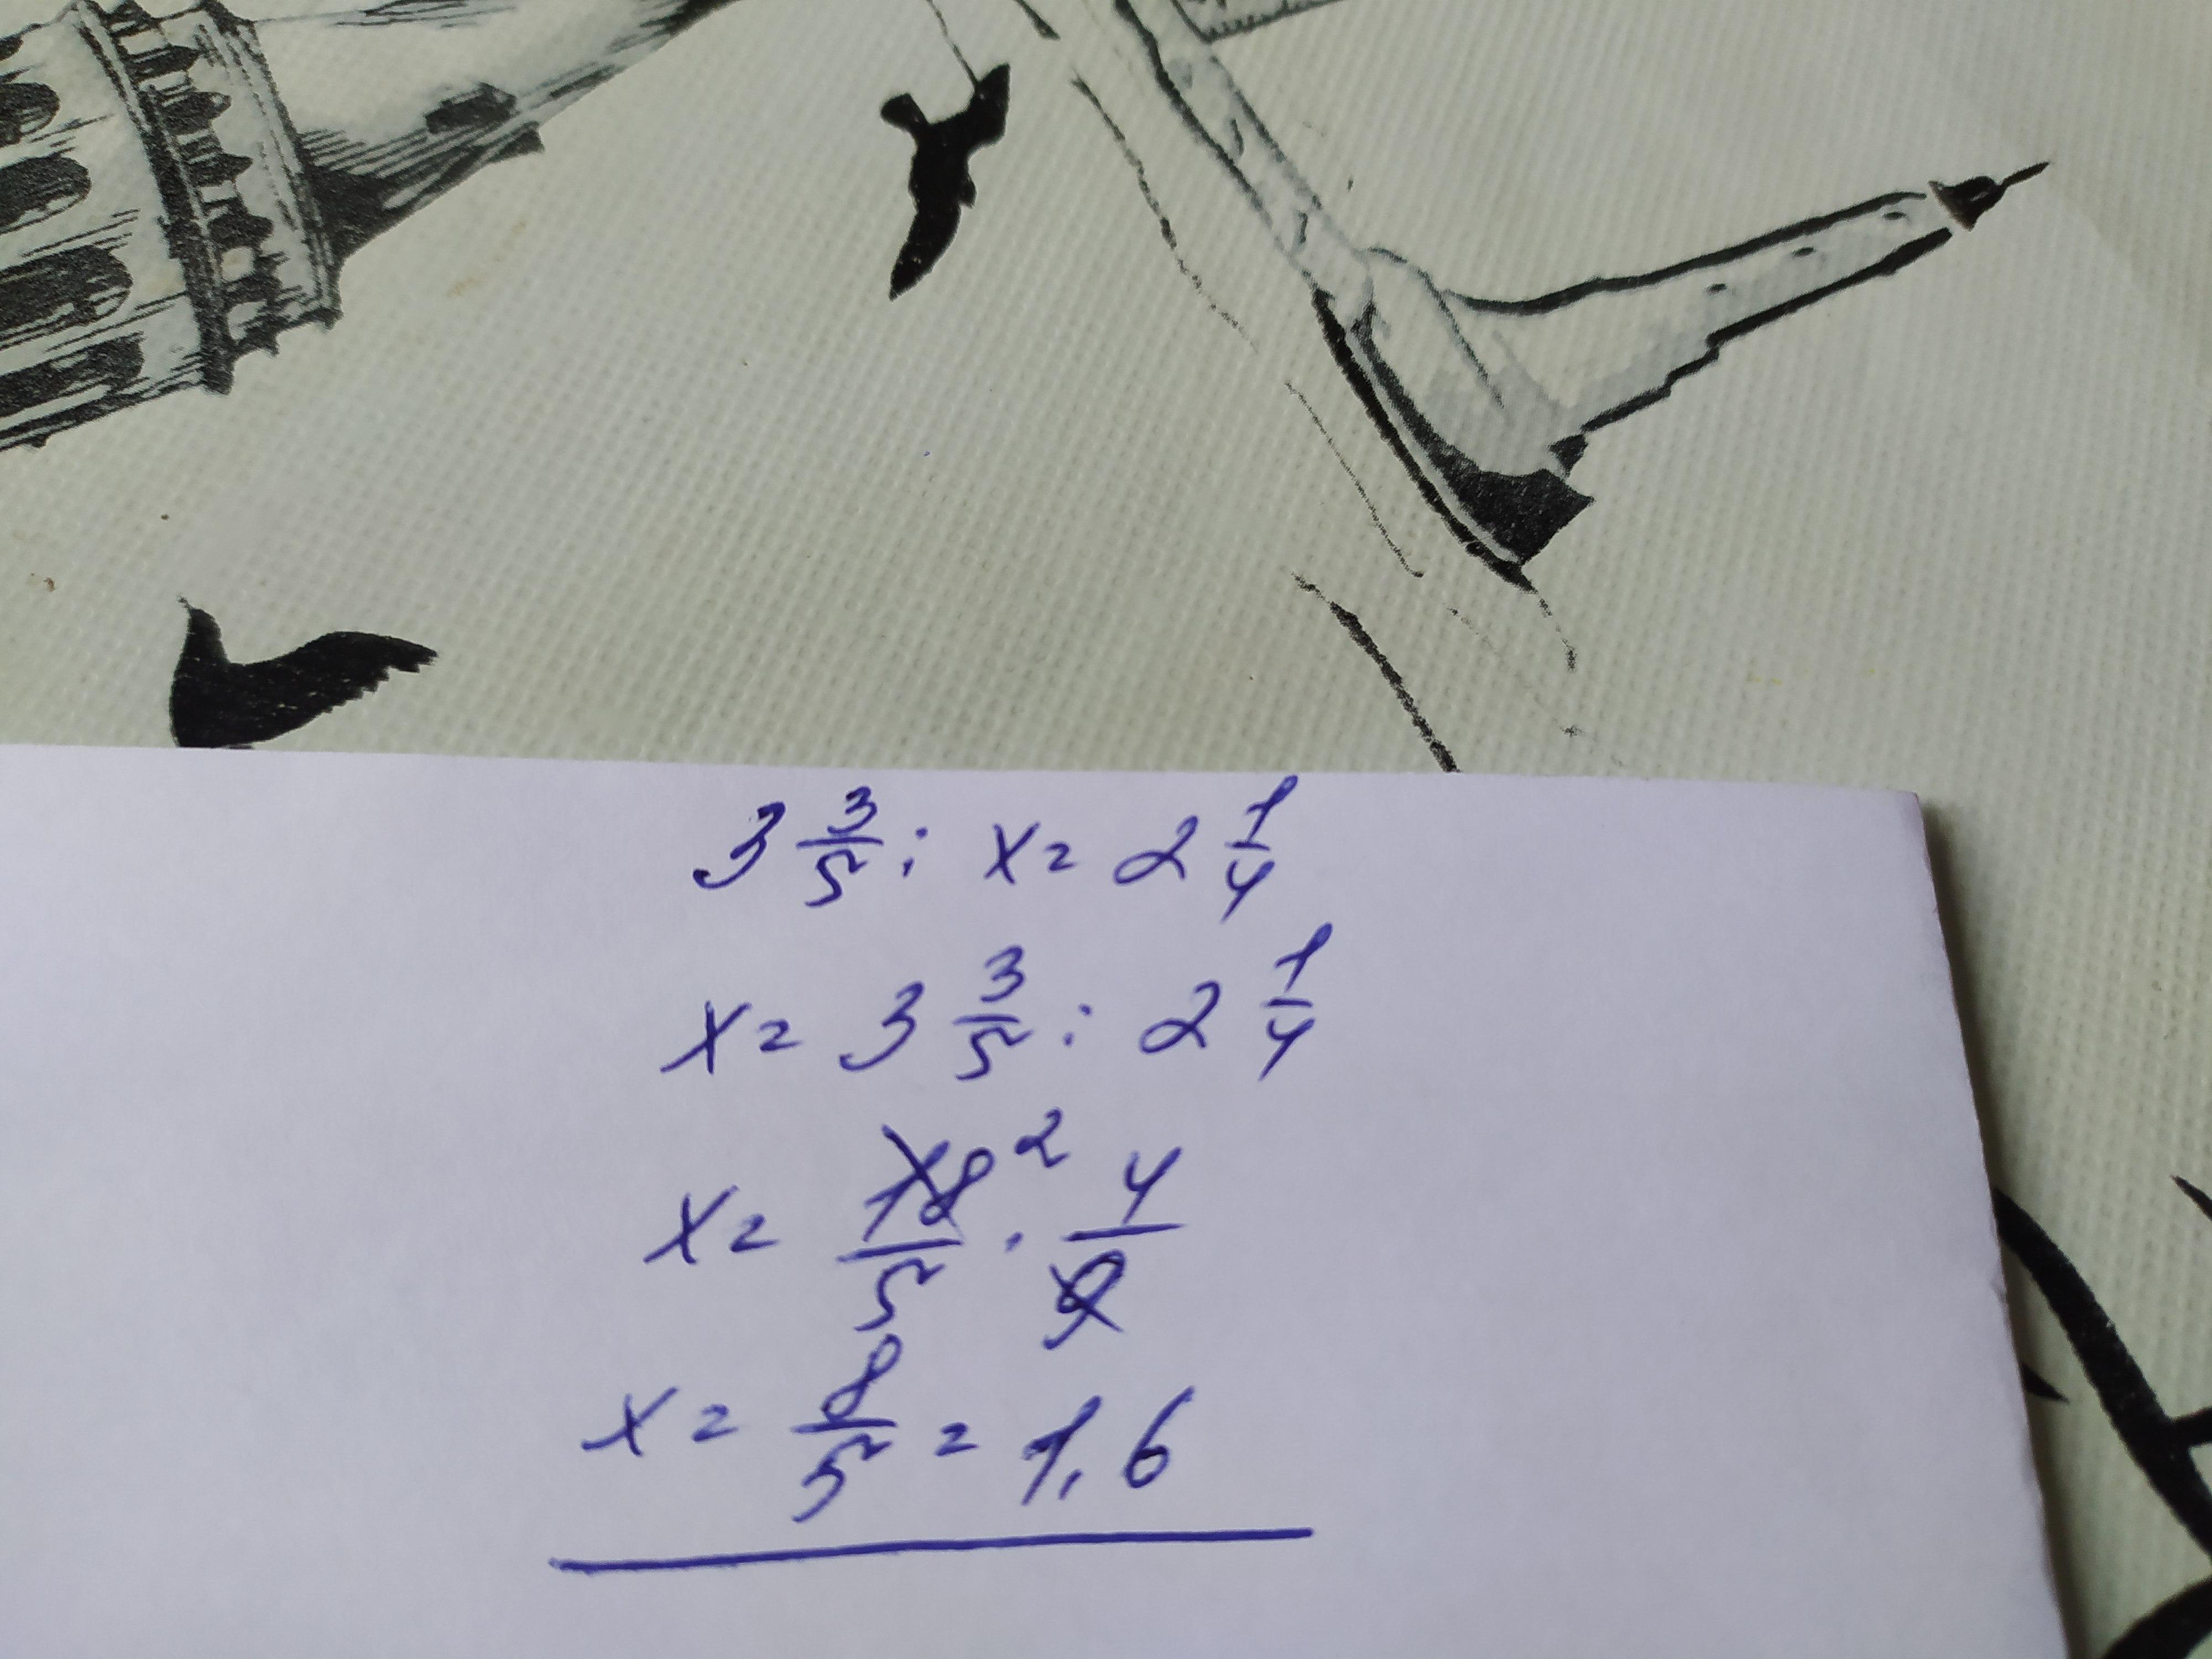 3 3/5 : x = 2 1/4
x = 3 3/5 : 2 1/4
x = 18/5 ² · 4/9
x = 8/5 = 1,6